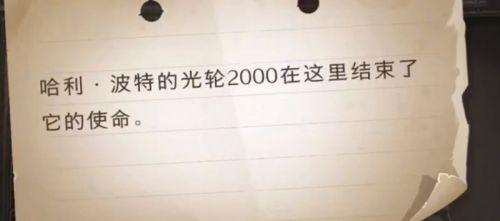 哈利·波特的光轮2000在这里结束了
它的使命。